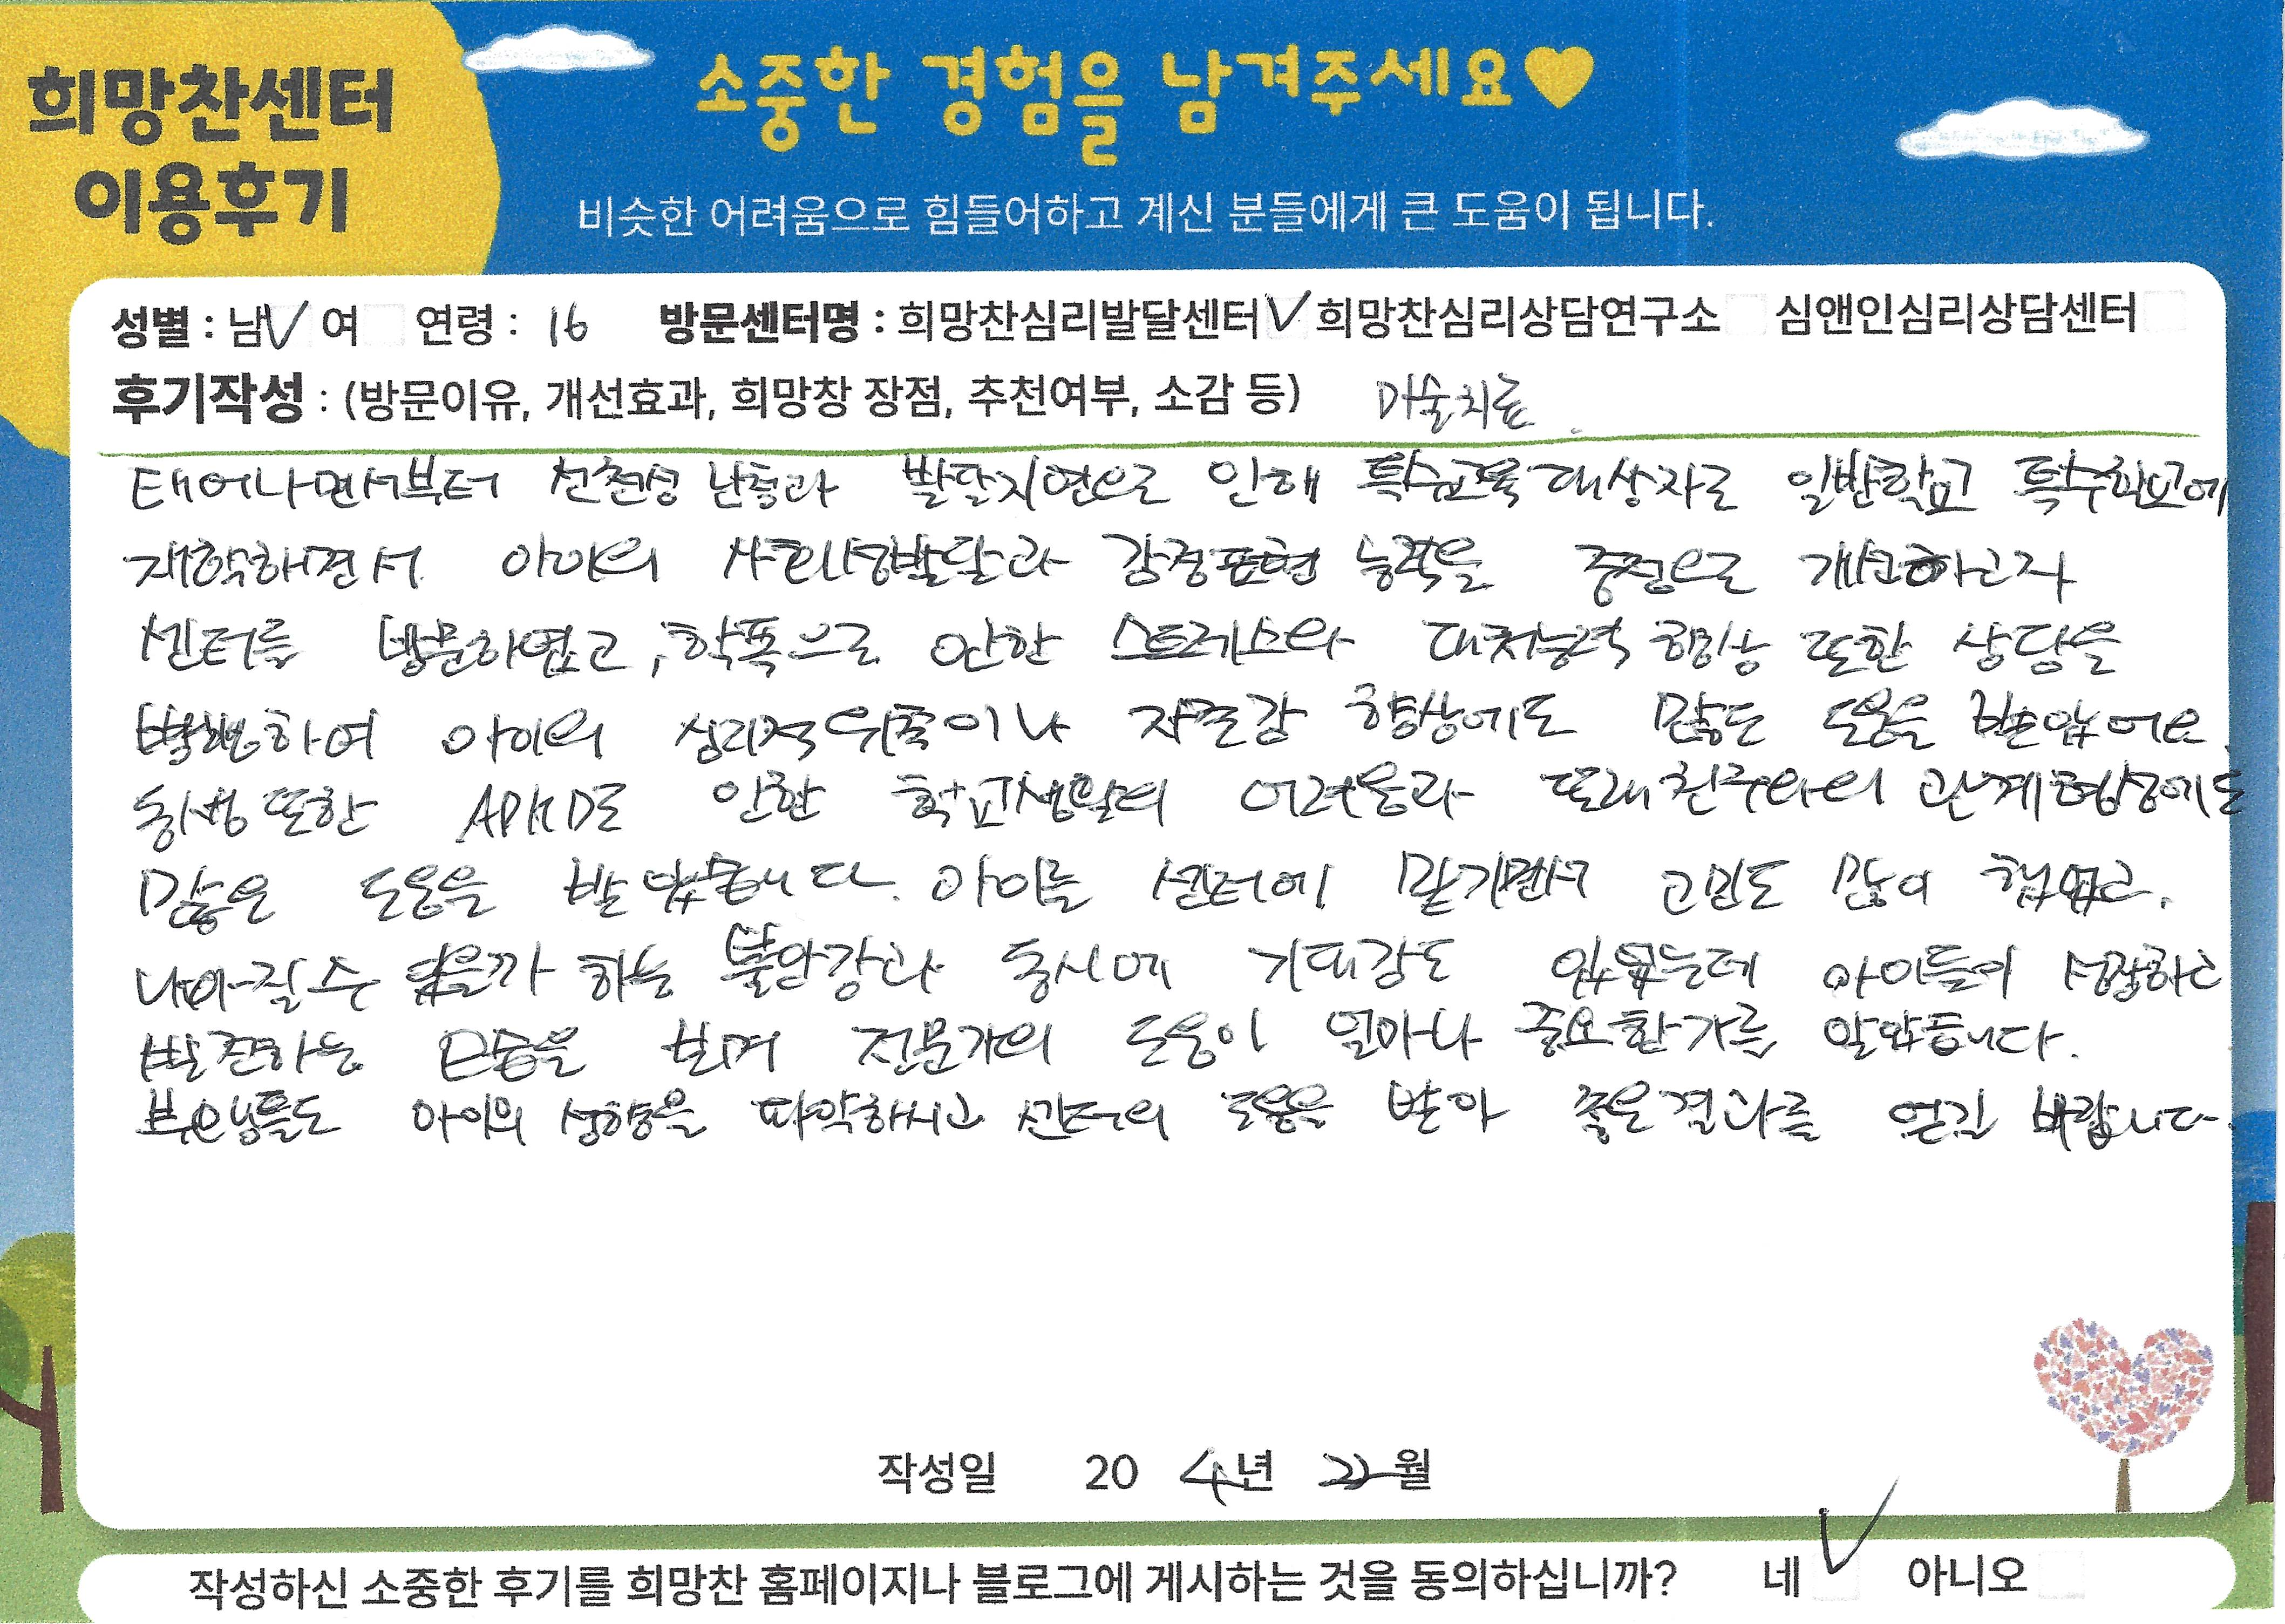 희망찬센터
이용후기
소중한 경험을 남겨주세요♥
비슷한 어려움으로 힘들어하고 계신 분들에게 큰 도움이 됩니다.
성별 : 남✓ 여 연령 : 16 방문센터명 : 희망찬심리발달센터✓ 희망찬심리상담연구소 심앤인심리상담센터
후기작성 : (방문이유, 개선효과, 희망창 장점, 추천여부, 소감 등) 미술치료
태어나면서부터 선천성 난청과 발달지연으로 인해 특수교육대상자로 일반학교 특수학교에
재학하면서 아이의 사회성발달과 감정표현 능력을 중점으로 개선하고자
센터를 방문하였고, 학폭으로 인한 스트레스와 대처능력 향상 또한 상담을
병행하여 아이의 심리적위축이나 자존감 향상에도 많은 도움을 받았어요.
동생 또한 ADHD로 인한 학교생활의 어려움과 또래친구와의 관계형성에도
많은 도움을 받았습니다. 아이를 센터에 맡기면서 고민도 많이 했었고,
나아질 수 있을까 하는 불안감과 동시에 기대감도 있었는데 아이들이 성장하고
발전하는 모습을 보며 전문가의 도움이 얼마나 중요한가를 알았습니다.
부모님들도 아이의 성향을 파악하시고 센터의 도움을 받아 좋은결과를 얻길 바랍니다.
작성일 20 4년 월
작성하신 소중한 후기를 희망찬 홈페이지나 블로그에 게시하는 것을 동의하십니까? 네 ✓ 아니오